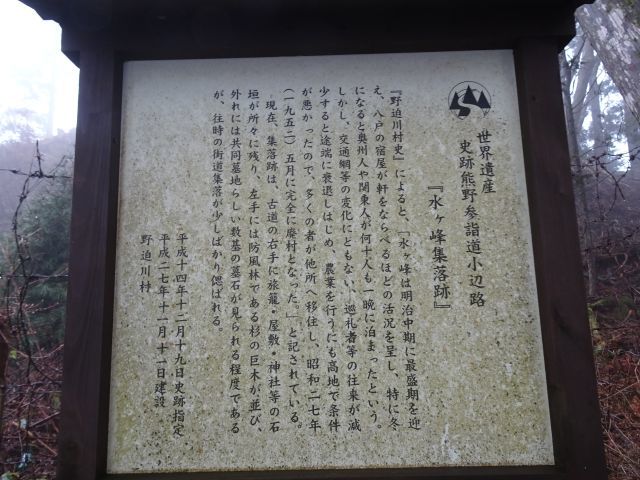 世界遺産
史跡熊野参詣道小辺路
『水ヶ峰集落跡』
『野迫川村史』によると、「水ヶ峰は明治中期に最盛期を迎
え、八戸の宿屋が軒をならべるほどの活況を呈し、特に冬
になると奥州人や関東人が何十人も一晩に泊まったという。
しかし、交通網等の変化にともない、巡礼者等の往来が減
少すると途端に衰退しはじめ、農業を行うにも高地で条件
が悪かったので、多くの者が他所へ移住し、昭和二七年
（一九五二）五月に完全に廃村となった。」と記されている。
現在、集落跡は、古道の右手に旅籠・屋敷・神社等の石
垣が所々に残り、左手には防風林である杉の巨木が並び、
外れには共同墓地らしい数基の墓石が見られる程度である
が、往時の街道集落が少しばかり偲ばれる。
平成十四年十二月十九日史跡指定
平成二七年十一月十一日建設
野迫川村